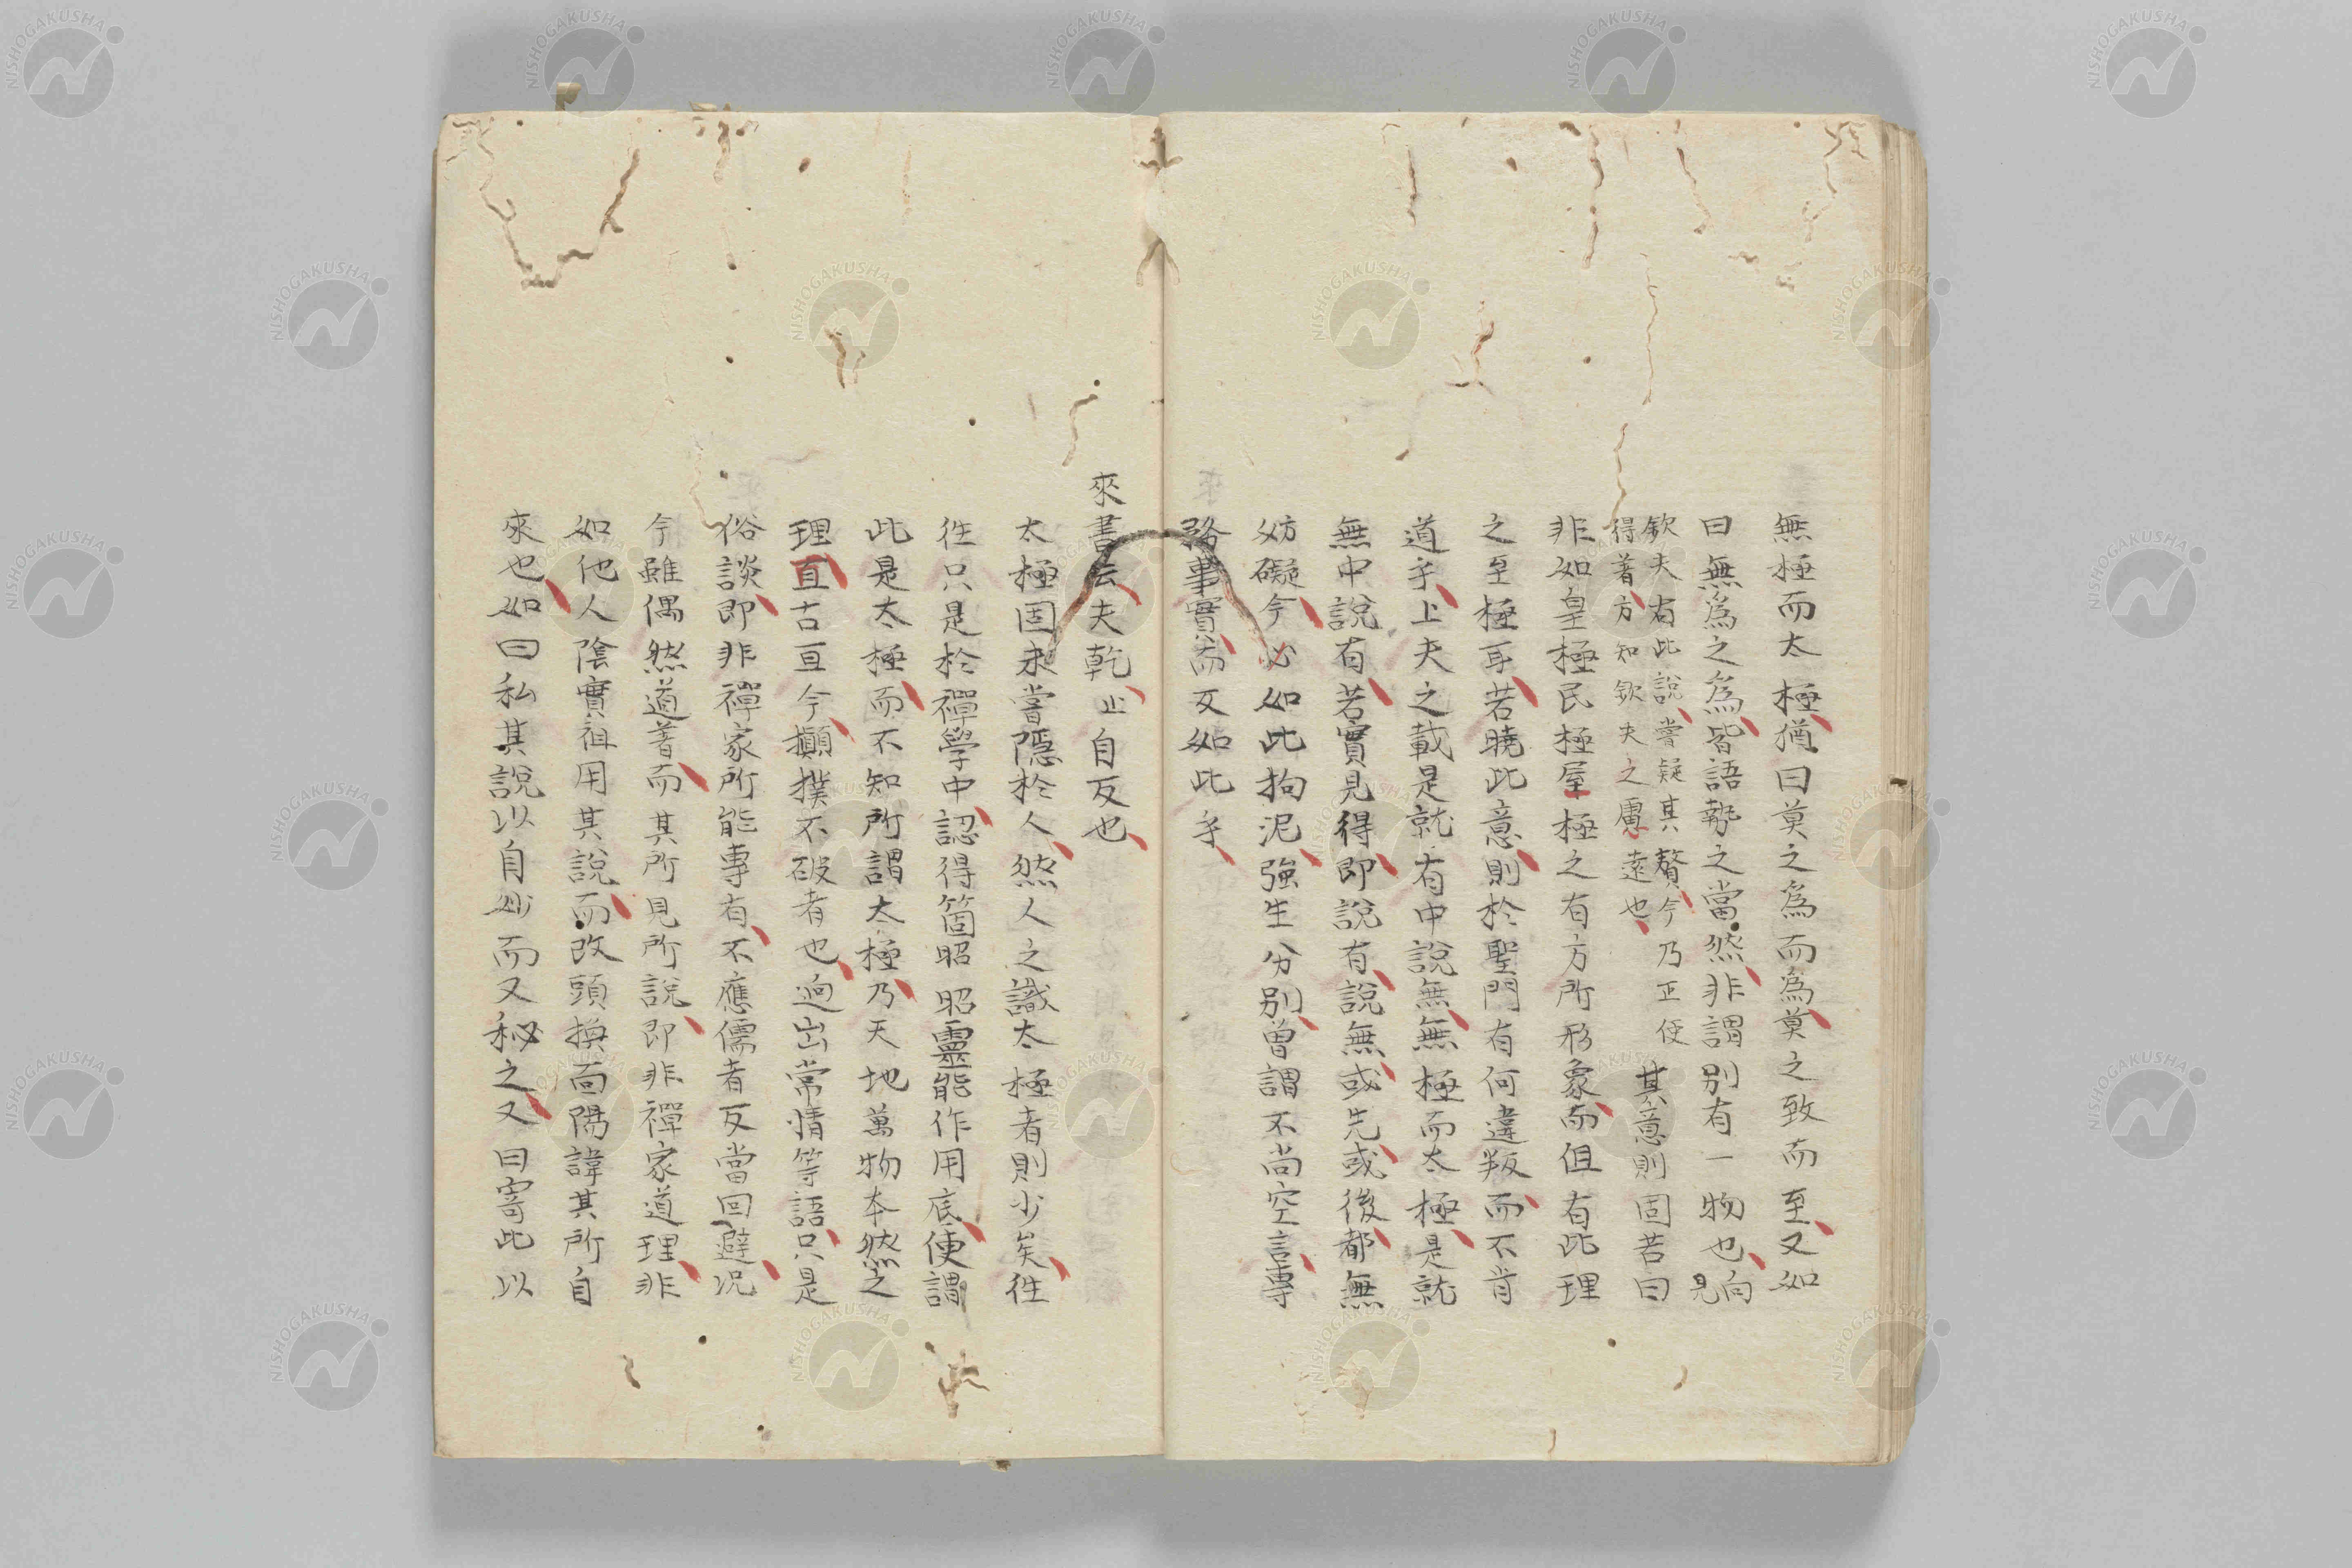 無極而太極猶曰莫之為而為莫之致而至又如
曰無為之為皆語勢之當然非謂別有一物也向見
欽夫有此說嘗疑其贅今乃正使
得著方知欽夫之慮遠也
其意則固若曰
非如皇極民極屋極之有方所形象而但有此理
之至極耳若曉此意則於聖門有何違叛而不肯
道乎上夫之載是就有中說無無極而太極是就
無中說有若實見得即說有說無或先或後都無
妨礙今必如此拘泥強生分別曾謂不尚空言專
務事實而反如此乎
來書云夫乾止自反也
太極固未嘗隱於人然人之識太極者則少矣往
往只是於禪學中認得箇昭昭靈能作用底便謂
此是太極而不知所謂太極乃天地萬物本然之
理亘古亘今攧撲不破者也迥出常情等語只是
俗談即非禪家所能專有不應儒者反當回避况
今雖偶然道著而其所見所說即非禪家道理非
如他人陰實祖用其說而改頭換面陽諱其所自
來也如曰私其說以自妙而又秘之又曰寄此以
NISHOGAKUSHA